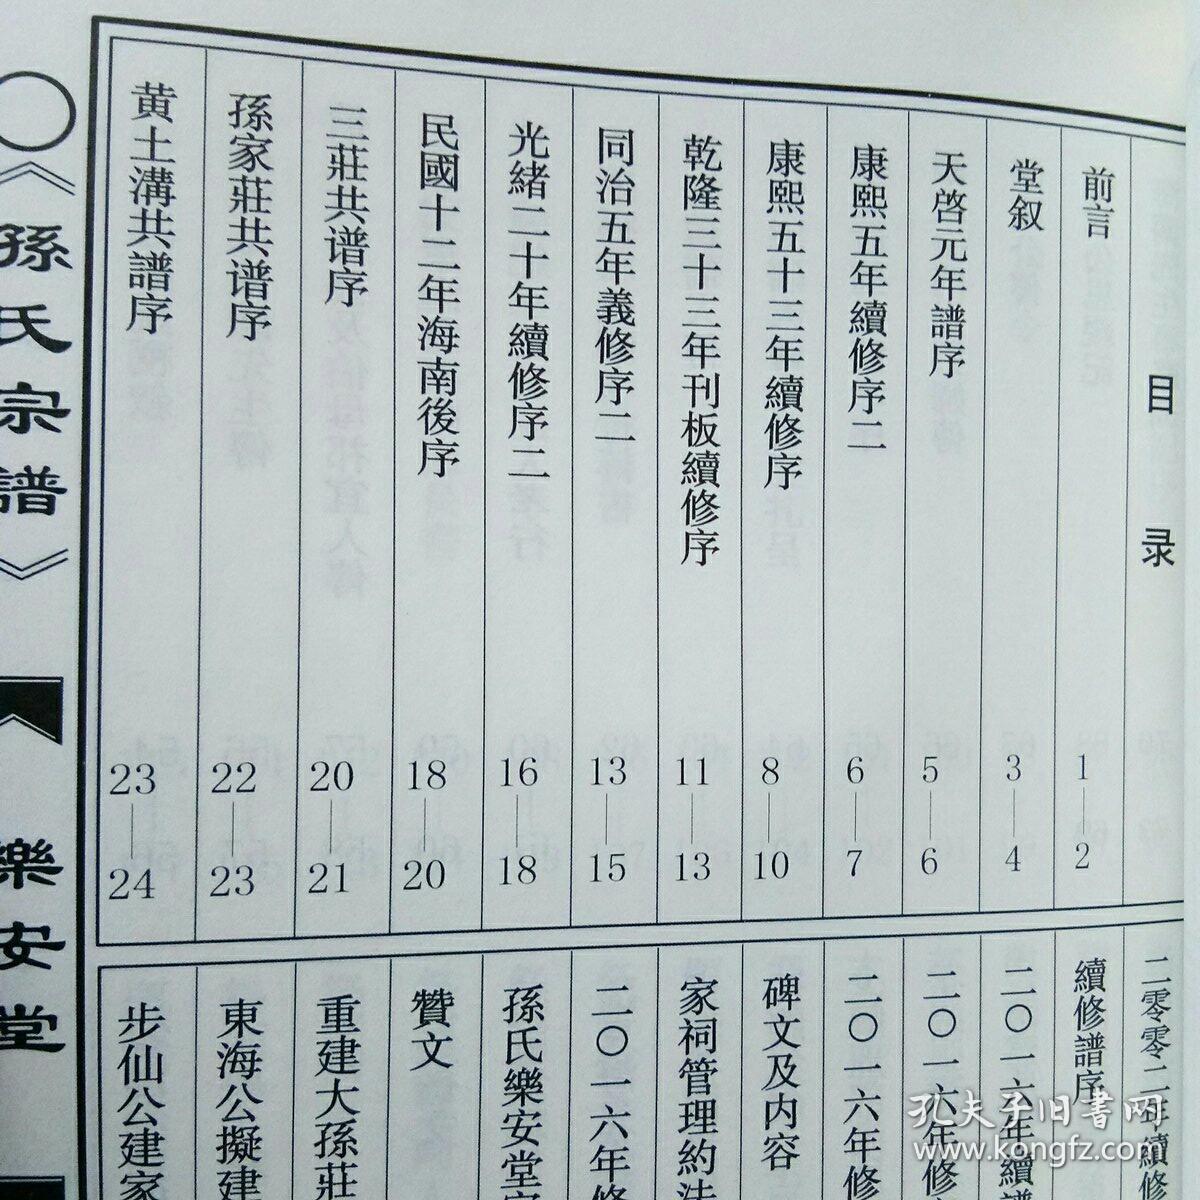 目录
前言 1—2
堂叙 3—4
天啓元年譜序 5—6
康熙五年續修序二 6—7
康熙五十三年續修序 8—10
乾隆三十三年刊板續修序 11—13
同治五年義修序二 13—15
光緒二十年續修序二 16—18
民國十二年海南後序 18—20
三莊共谱序 20—21
孫家莊共谱序 22—23
黄土溝共譜序 23—24
二零零二年續修
續修譜序
二〇一六年續譜
二〇一六年修
二〇一六年修
碑文及内容
家祠管理約法
二〇一六年修
孫氏樂安堂
贊文
重建大孫莊
東海公擬建
步仙公建家
《孫氏宗譜》
樂安堂
孔夫子旧書网
www.kongfz.com